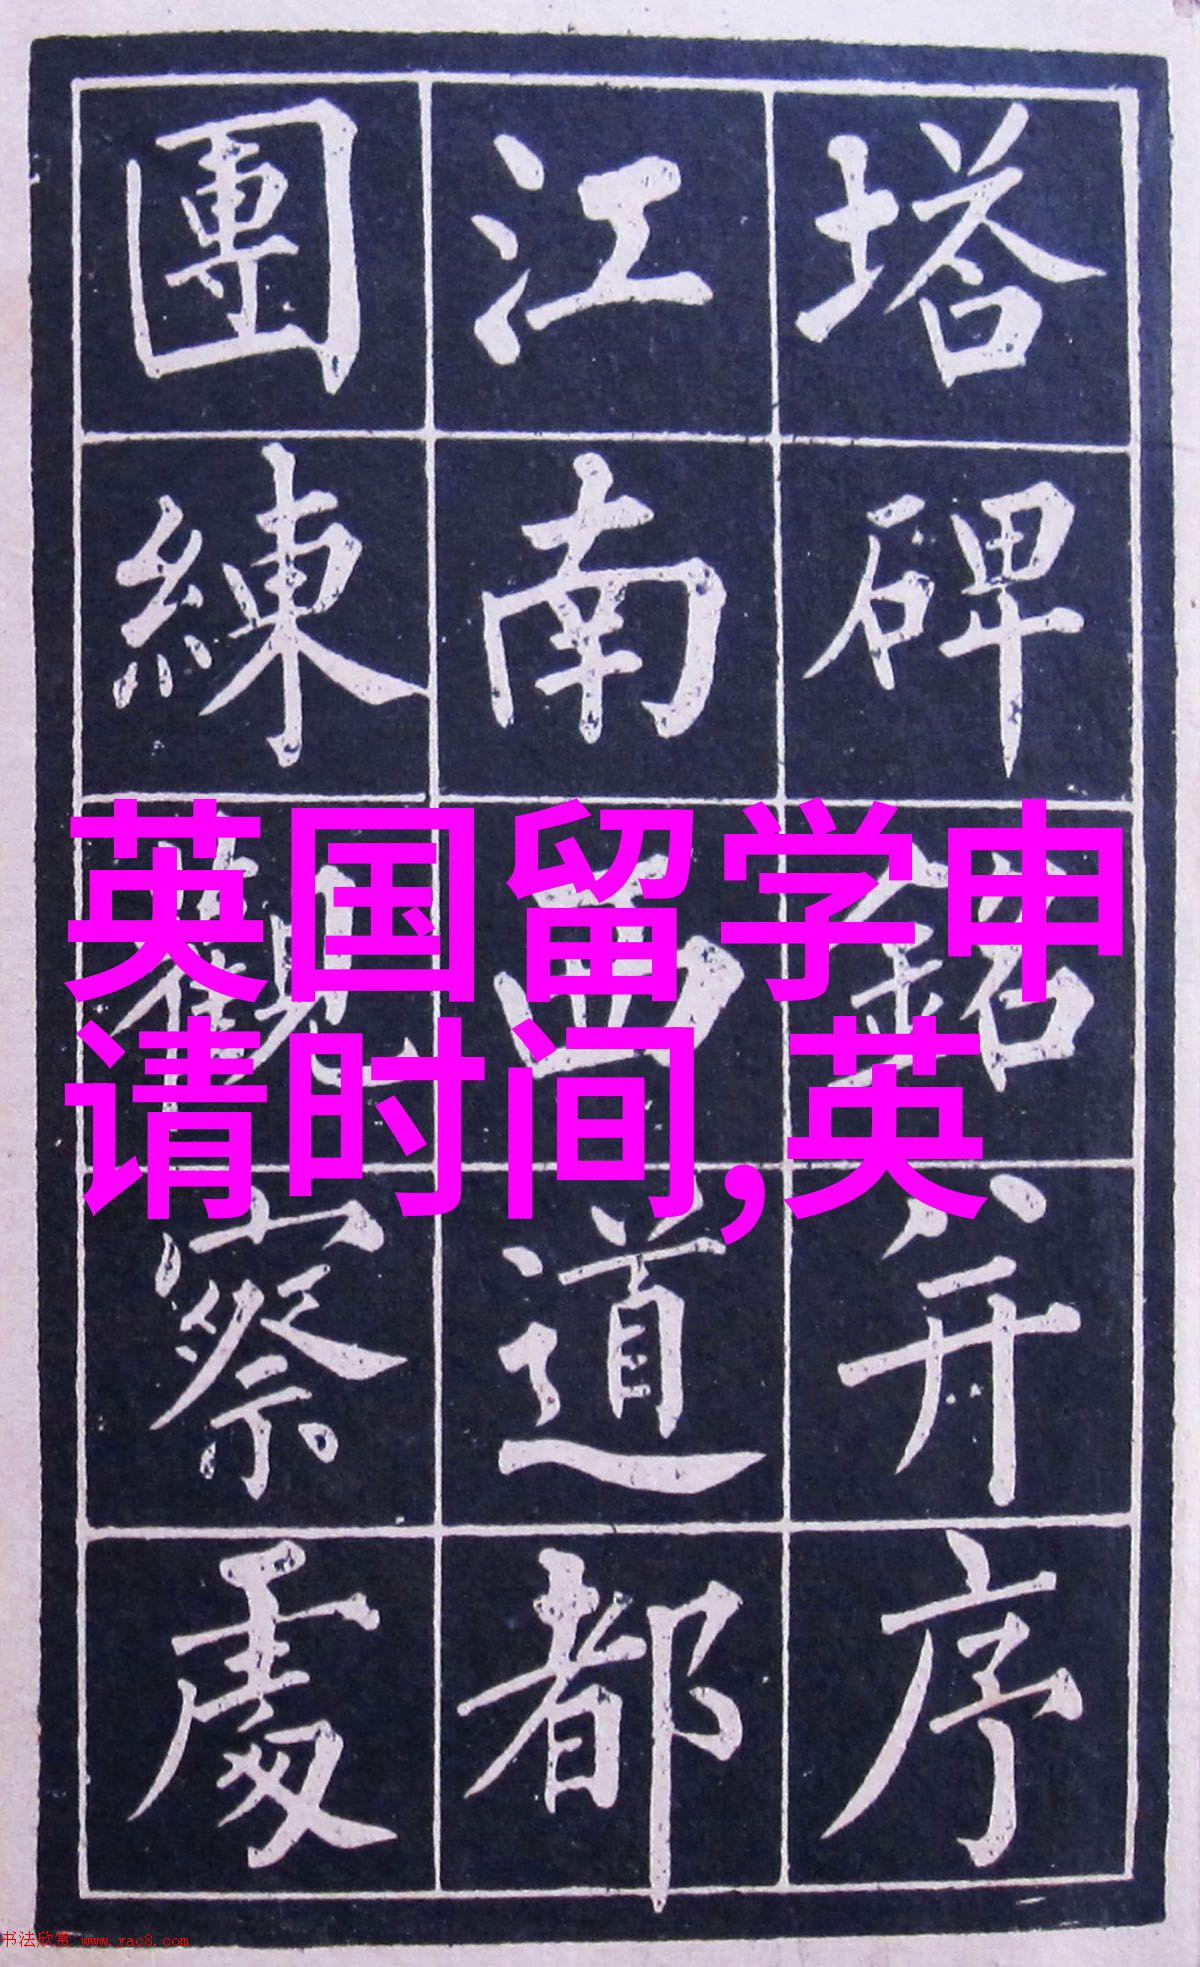 塔碑銘并序
江南西道都
團練觀察處
英国留学申
请时间,英
书法欣赏 www.yac8.com